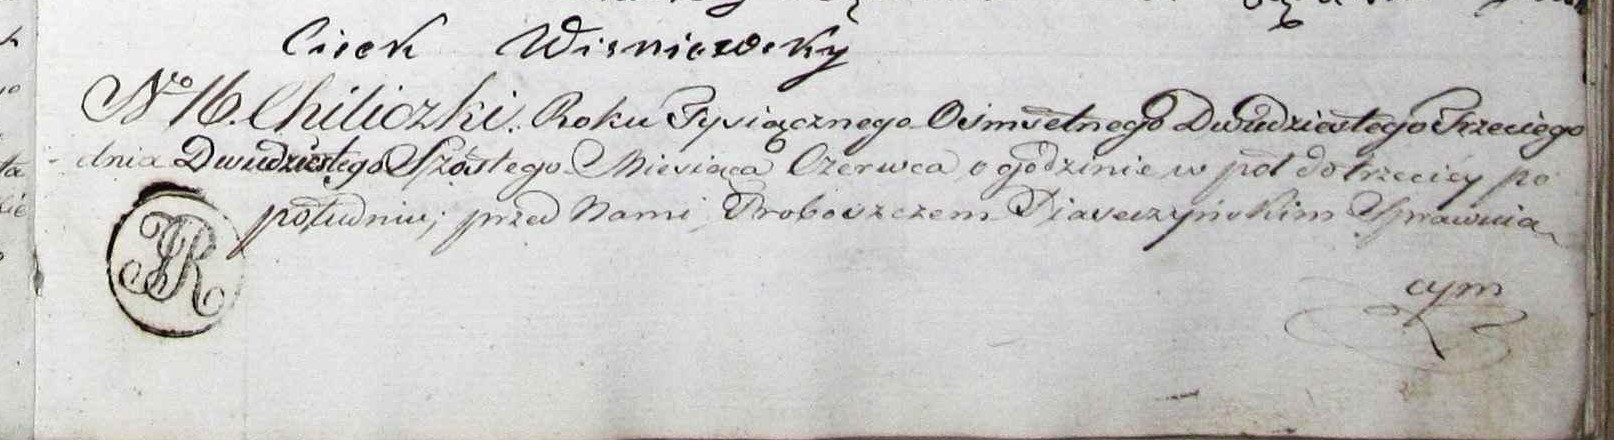 Ciek Wisniewsky
No 16. Chiliczki. Roku Tysiącznego Osmsetnego Dwudziestego Trzeciego
dnia Dwudziestego Szóstego Miesiąca Czerwca o godzinie w pół do trzeciey po
południu; przed Nami Proboszczem Piaseczyńskim Sprawuia
JR
cym